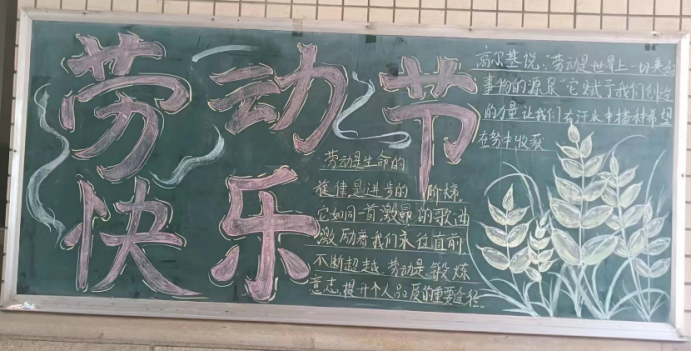 劳动节
快乐
高尔基说:劳动是世界上一切美好
事物的源泉"它赋予我们创造
的力量让我们在汗水中播种希望
在劳中收获
劳动是生命的
旋律是进步的阶梯
它如同一首激昂的歌曲
激励着我们永往直前
不断超越劳动是锻炼
意志,提升个人品质的重要途径。